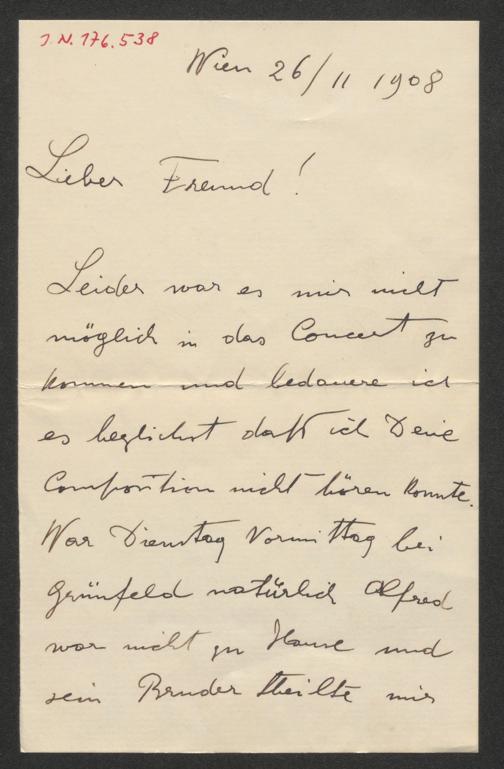 I.N. 176.538
Wien 26/11 1908
Lieber Freund!
Leider war es mir nicht
möglich in das Concert zu
kommen und bedauere ich
es herzlichst daß ich Deine
Composition nicht hören konnte.
War Dienstag Vormittag bei
Grünfeld natürlich Alfred
war nicht zu Hause und
sein Bruder theilte mir